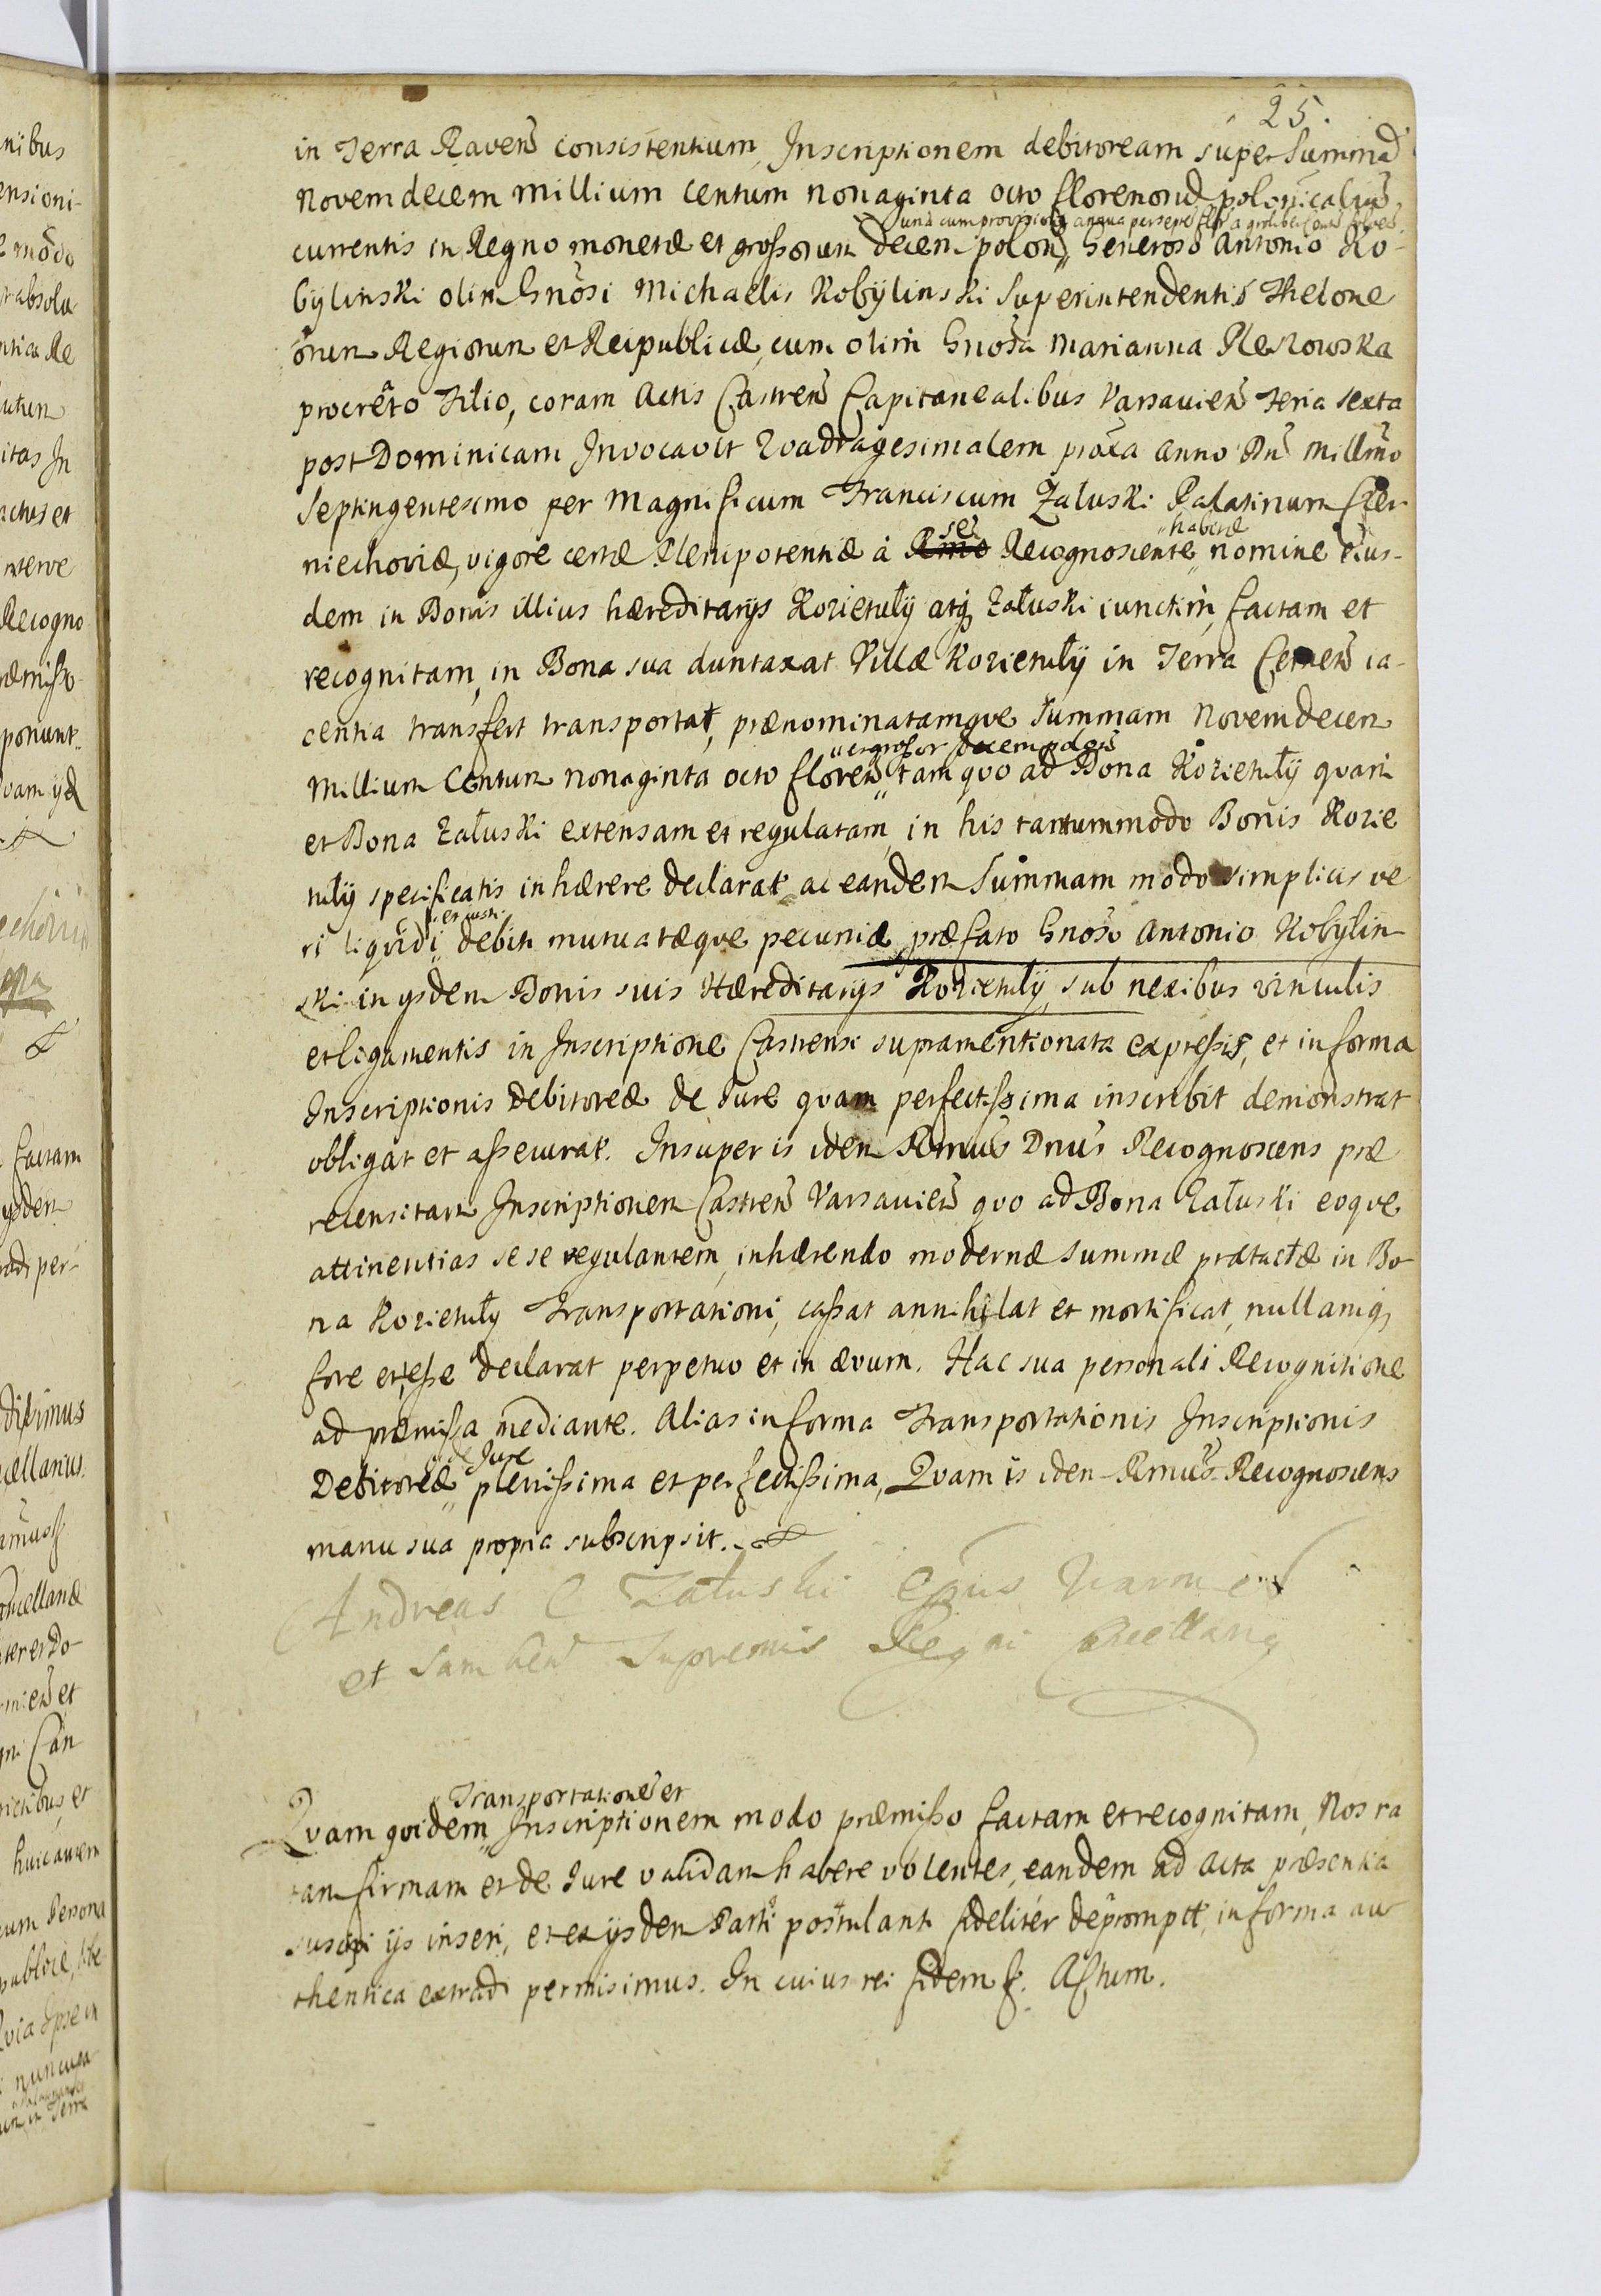 25.
in Terra Raveñ consistentium, Inscriptionem debitoream super Summã
Novemdecem millium centum nonaginta octo florenorũ polonicaliũ
unà cum provisione annua per septe
currentis in Regno monetæ et grossorum decem poloñ, Generoso Antonio Ko-
bÿlinski olim Gnõsi Michaelis Kobÿlinski Superintendentis Thelone
orum Regiorum et Reipublicæ, cum olim Gnõsa Marianna Pleskowska
procrẽto Filio, coram Actis Castreñ Capitanealibus Varsavieñ Feria sexta
post Dominicam Invocavit Quadragesimalem proxa Anno Dñi Millm̃o
Septingentesimo per Magnificum Franciscum Załuski Palatinum Czer
niechoviæ, vigore certæ Plenipotentiæ à R̶m̶o̶ se Recognoscente „habitæ nomine eius-
dem in Bonis illius hæreditarÿs Kozietułÿ atq; Załuski iunctim factam et
recognitam, in Bona sua duntaxat Villæ Kozietułÿ in Terra Cerneñ ia-
centia transfert transportat, prænominatamque Summam Novemdecem
„et grossor decem poloñ
Millium Centum nonaginta octo floreñ„ tam quo ad Bona Kozietułÿ quam
et Bona Załuski extensam et regulatam, in his tantummodo Bonis Kozie
tułÿ specificatis inhærere declarat, ac eandem Summam modo simplicis ve
ri liquidi „et iusti debiti mutuatæque pecuniæ præfato Gnõso Antonio Kobÿlin
ski in ÿsdem Bonis suis Hæreditarÿs Kozietułÿ, sub nexibus vinculis
et ligamentis in Inscriptione Castrensi supramentionata expressis, et in forma
Inscriptionis Debitoreæ de Iure quam perfectissima inscribit demonstrat
obligat et assecurat. Insuper is idem Rm̃us Dnũs Recognoscens præ
recensitam Inscriptionem Castreñ Varsavieñ quo ad Bona Załuski eoque
attinentias se se regulantem, inhærendo modernæ Summæ prætactæ in Bo-
na Kozietułÿ Transportationi, cassat annihilat et mortificat, nullamq;
fore et esse declarat perpetuo et in ævum. Hac sua personali Recognitione
ad præmissa mediante. Alias in forma Transportationis Inscriptionis
Debitoreæ „de Jure plenissima et perfectissima, Quam is idem Rm̃us Recognoscens
manu sua propria subscripsit.
Andreas C Załuski Epũs Varmeñ
et Sambieñ Supremus Regni Cancellariq
„Transportationẽ et
Quam quidem „ Inscriptionem modo præmisso factam et recognitam, Nos ra
tam firmam et de Iure validam habere volentes, eandem ad Acta præsentia
suscipi ijs inseri, et ex ÿsdem Parti postulanti fideliter depromptt, in forma au
thentica extradi permisimus. In cuius rei fidem &. Actum.